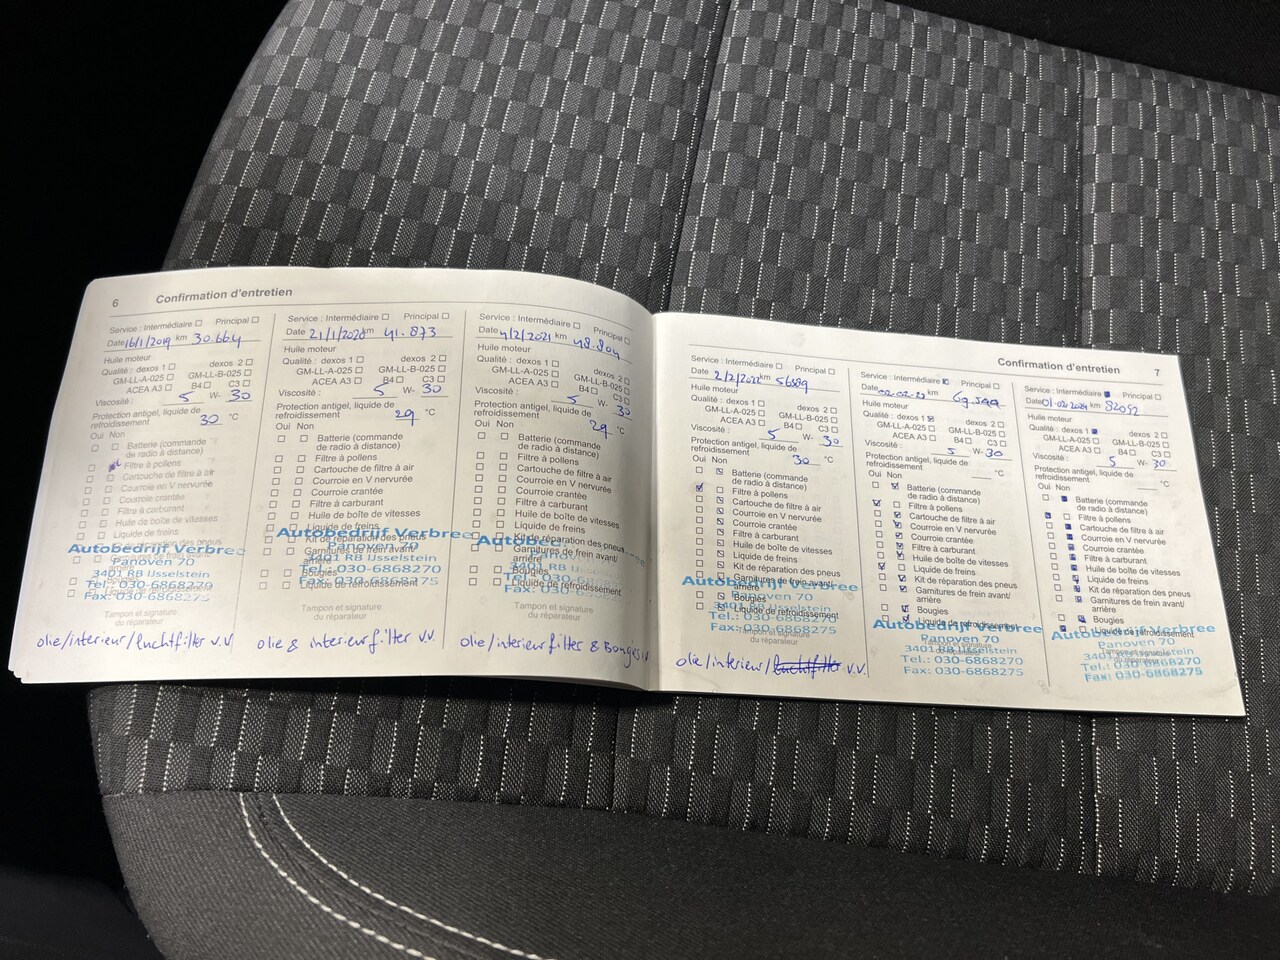 6 Confirmation d'entretien
Service : Intermédiaire Principal
Date 16/1/2019 km 30.664
Huile moteur
Qualité : dexos 1 dexos 2
GM-LL-A-025 GM-LL-B-025
ACEA A3 B4 C3
Viscosité : 5 W- 30
Protection antigel, liquide de
refroidissement 30 °C
Oui Non
Batterie (commande
de radio à distance)
Filtre à pollens
Cartouche de filtre à air
Courroie en V nervurée
Courroie crantée
Filtre à carburant
Huile de boîte de vitesses
Liquide de freins
Autobedrijf Verbree
Panoven 70
3401 RB IJsselstein
Tel.: 030-6868270
Fax: 030-6868275
Tampon et signature
du réparateur
olie/interieur/luchtfilter v.v.
Service : Intermédiaire Principal
Date 21/1/2020 km 41.873
Huile moteur
Qualité : dexos 1 dexos 2
GM-LL-A-025 GM-LL-B-025
ACEA A3 B4 C3
Viscosité : 5 W- 30
Protection antigel, liquide de
refroidissement 29 °C
Oui Non
Batterie (commande
de radio à distance)
Filtre à pollens
Cartouche de filtre à air
Courroie en V nervurée
Courroie crantée
Filtre à carburant
Huile de boîte de vitesses
Liquide de freins
Kit de réparation des pneus
Garnitures de frein avant/
arrière
Bougies
Liquide de refroidissement
Autobedrijf Verbree
Panoven 70
3401 RB IJsselstein
Tel.: 030-6868270
Fax: 030-6868275
Tampon et signature
du réparateur
olie & interieurfilter v.v.
Service : Intermédiaire Principal
Date 4/2/2021 km 48.804
Huile moteur
Qualité : dexos 1 dexos 2
GM-LL-A-025 GM-LL-B-025
ACEA A3 B4 C3
Viscosité : 5 W- 30
Protection antigel, liquide de
refroidissement 29 °C
Oui Non
Batterie (commande
de radio à distance)
Filtre à pollens
Cartouche de filtre à air
Courroie en V nervurée
Courroie crantée
Filtre à carburant
Huile de boîte de vitesses
Liquide de freins
Kit de réparation des pneus
Garnitures de frein avant/
arrière
Bougies
Liquide de refroidissement
Tampon et signature
du réparateur
olie/interieurfilter & Bougies
Confirmation d'entretien 7
Service : Intermédiaire Principal
Date 2/2/2022 km
Huile moteur
Qualité : dexos 1 dexos 2
GM-LL-A-025 GM-LL-B-025
ACEA A3 B4 C3
Viscosité : 5 W- 30
Protection antigel, liquide de
refroidissement 30 °C
Oui Non
Batterie (commande
de radio à distance)
Filtre à pollens
Cartouche de filtre à air
Courroie en V nervurée
Courroie crantée
Filtre à carburant
Huile de boîte de vitesses
Liquide de freins
Kit de réparation des pneus
Garnitures de frein avant/
arrière
Bougies
Liquide de refroidissement
Autobedrijf Verbree
Panoven 70
3401 RB IJsselstein
Tel.: 030-6868270
Fax: 030-6868275
Tampon et signature
du réparateur
olie/interieur/luchtfilter v.v.
Service : Intermédiaire Principal
Date 02-02-23 km
Huile moteur
Qualité : dexos 1 dexos 2
GM-LL-A-025 GM-LL-B-025
ACEA A3 B4 C3
Viscosité : 5 W- 30
Protection antigel, liquide de
refroidissement °C
Oui Non
Batterie (commande
de radio à distance)
Filtre à pollens
Cartouche de filtre à air
Courroie en V nervurée
Courroie crantée
Filtre à carburant
Huile de boîte de vitesses
Liquide de freins
Kit de réparation des pneus
Garnitures de frein avant/
arrière
Bougies
Liquide de refroidissement
Autobedrijf Verbree
Panoven 70
3401 RB IJsselstein
Tel.: 030-6868270
Fax: 030-6868275
Service : Intermédiaire Principal
Date 01-02-2024 km 82052
Huile moteur
Qualité : dexos 1 dexos 2
GM-LL-A-025 GM-LL-B-025
ACEA A3 B4 C3
Viscosité : 5 W- 30
Protection antigel, liquide de
refroidissement °C
Oui Non
Batterie (commande
de radio à distance)
Filtre à pollens
Cartouche de filtre à air
Courroie en V nervurée
Courroie crantée
Filtre à carburant
Huile de boîte de vitesses
Liquide de freins
Kit de réparation des pneus
Garnitures de frein avant/
arrière
Bougies
Liquide de refroidissement
Autobedrijf Verbree
Panoven 70
3401 RB IJsselstein
Tel.: 030-6868270
Fax: 030-6868275